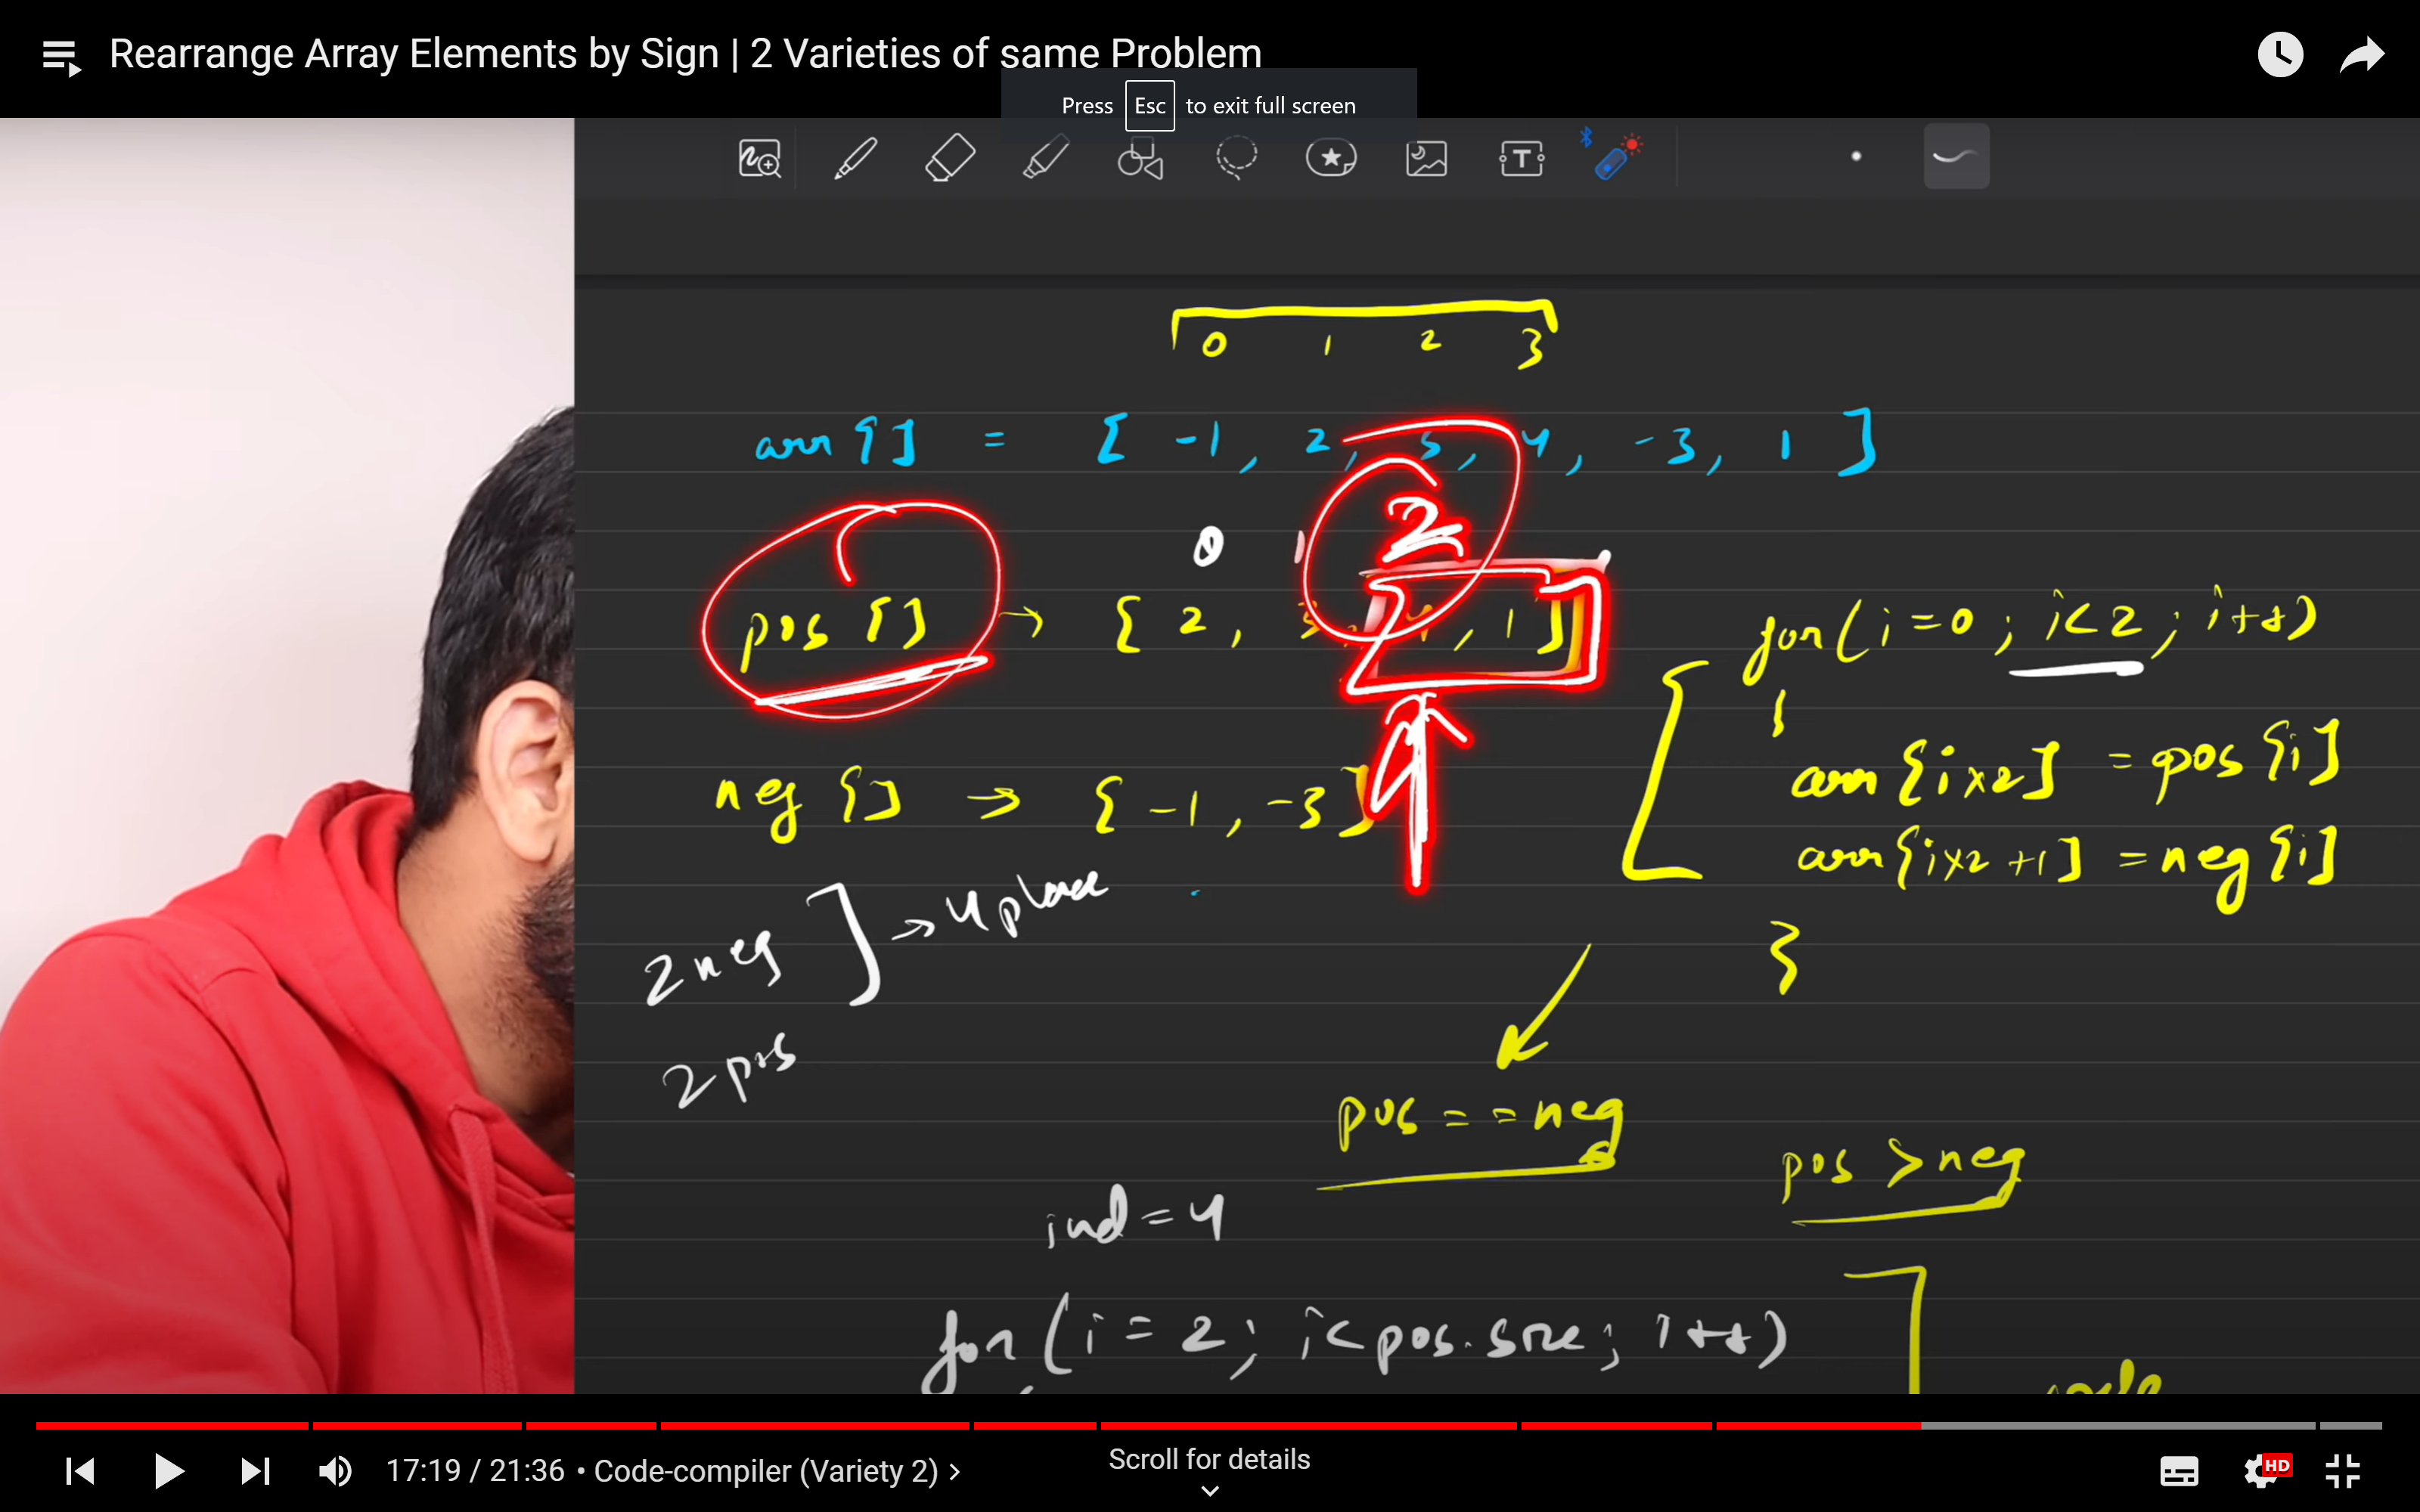 Rearrange Array Elements by Sign | 2 Varieties of same Problem
Press Esc to exit full screen
T
0 1 2 3
arr[] = [-1, 2, 3, 4, -3, 1]
0 1 2
pos[] → [2, 3, 4, 1]
for(i=0; i<2; i++)
{
arr[i×2] = pos[i]
neg[] → [-1, -3]
arr[i×2+1] = neg[i]
}
2 neg ] → 4 place
2 pos
pos == neg
pos > neg
ind = 4
for(i=2; i<pos.size; i++)
17:19 / 21:36 • Code-compiler (Variety 2) >
Scroll for details
HD